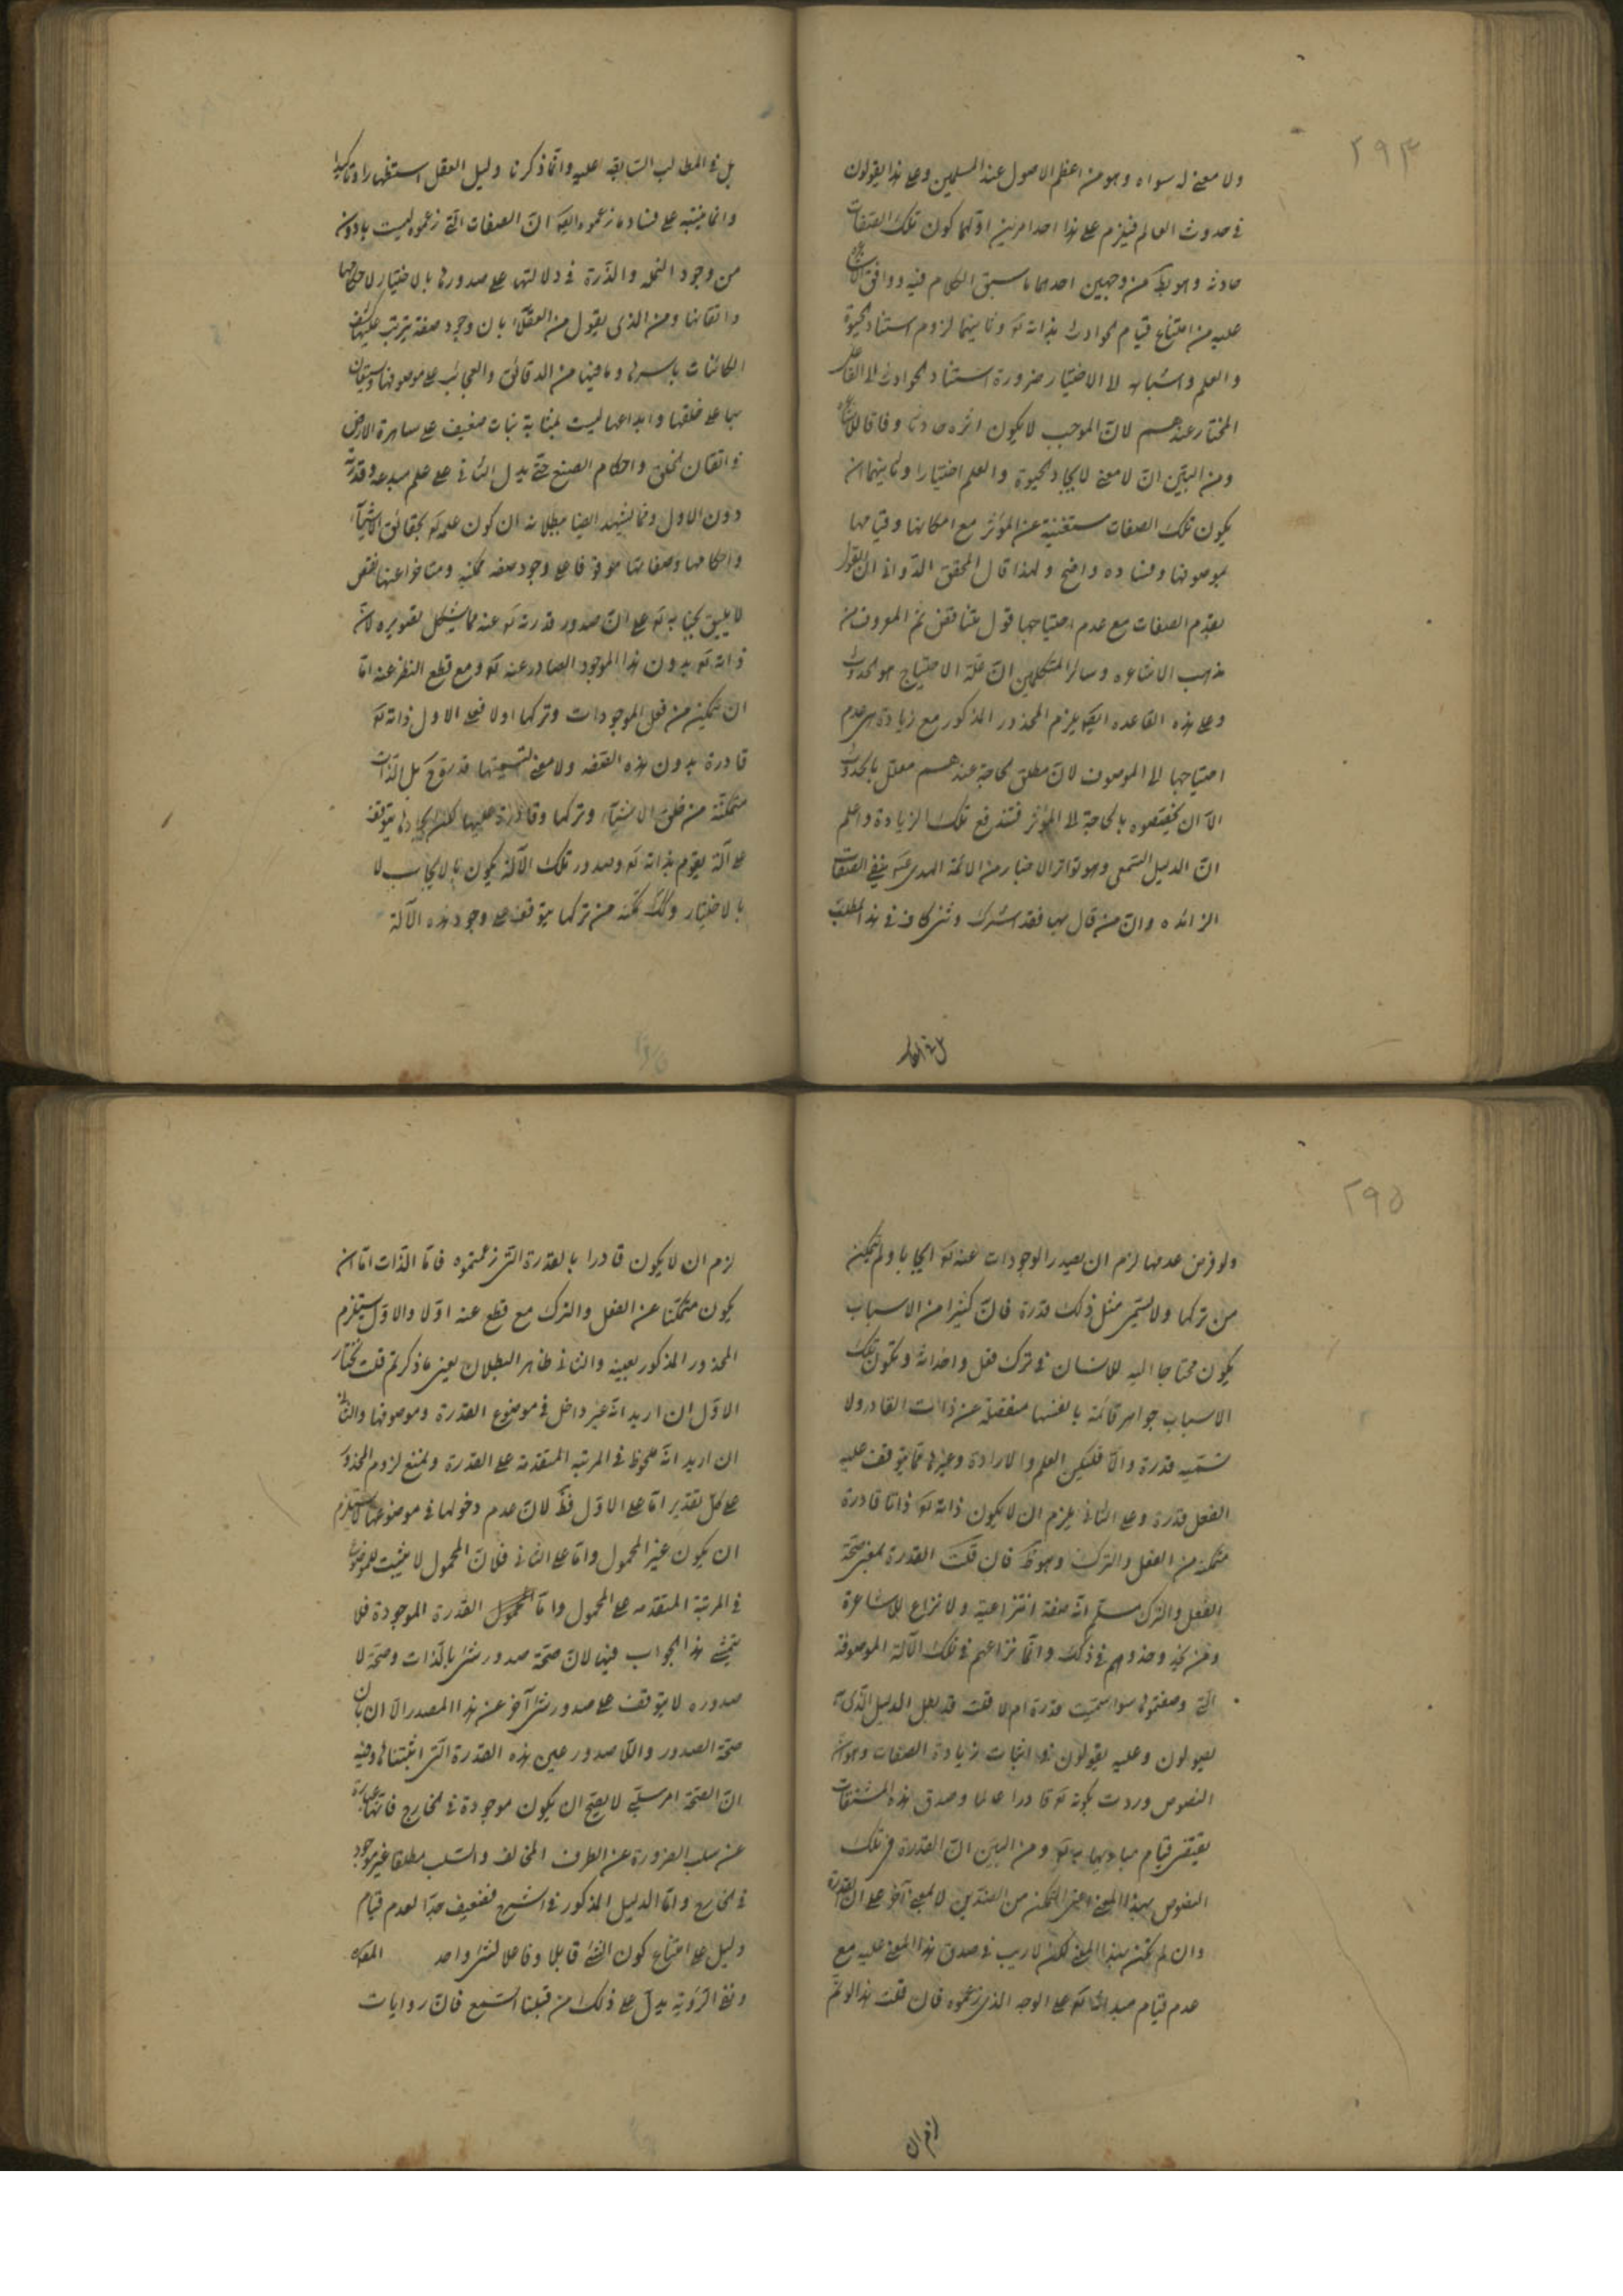 ۲۹۴
ولا معنى له سواه وهو من اعظم الاصول عند المسلمين وعلى هذا يقولون
فى حدوث العالم فيلزم على هذا احد امرين اوّلهما كون تلك الصّفات
حادثه وهو بط من وجهين احدهما ما سبق الكلام فيه ووافق الاشاعره
عليه من امتناع قيام الحوادث بذاته تع وثانيهما لزوم استناد الحيوة
والعلم واشباهه لا الاختيار ضرورة استناد الحوادث الى الفاعل
المختار عندهم لانّ الموجب لا يكون اثره حادثا وفاقا للاشاعره
ومن البيّن انّ لا معنى لايجاد الحيوة والعلم اختيارا وثانيهما ان
يكون تلك الصفات مستغنية عن المؤثر مع امكانها وقيامها
بموصوفها وفساده واضح ولهذا قال المحقق الدّوانى ان القول
بقدم الصفات مع عدم احتياجها قول متناقض ثم المعروف من
مذهب الاشاعره وسائر المتكلمين انّ علّة الاحتياج هو الحدوث
وعلى هذه القاعده ايضا يلزم المحذور المذكور مع زيادة هى عدم
احتياجها الى الموصوف لانّ مطلق الحاجة عندهم معلّل بالحدوث
الّا ان يخصّصوه بالحاجة الى المؤثر فتندفع تلك الزيادة واعلم
انّ الدليل السّمعى وهو تواتر الاخبار من الائمّة الهدى ع بنفى الصّفات
الزائده وانّ من قال بها فقد اشرك وثنّى كاف فى هذا المطلب
بل فى المطا
بل فى المطالب السّابقه عليه وانّما ذكرنا دليل العقل استظهارا وتاكيدا
وانما ينبّه على فساد ما زعموه ايضا انّ الصفات الّتى زعموه ليست بادون
من وجود النحله والذّرة فى دلالتها على صدورها بالاختيار لاحكامها
واتقانها ومن الذى يقول من العقلاء بان وجود صفة يترتب عليها
الكائنات باسرها وما فيها من الدقائق والعجائب على موصوفها ويستعان
بها على خلقها وابداعها ليست بمثابة نبات ضعيف على ساهرة الارض
فى اتقان الخلق واحكام الصنع حتّى يدل الثانى على علم مبدعه وقدرته
دون الاول وممّا يشهد ايضا ببطلانه ان كون علمه تع بحقائق الاشياء
واحكامها وصفاتها موقوفا على وجود صفه ممكنه ومتاخرا عنها نقص
لا يليق بجنابه تع على انّ صدور قدرته تع عنه مما يشكل تصويره لانّ
ذاته تع بدون هذا الموجود الصادر عنه تع ومع قطع النظر عنه امّا
ان يمكن من فعل الموجودات وتركها اولا فعلى الاول ذاته تع
قادرة بدون هذه الصّفه ولا معنى لتسميتها قدرة ح بل الذّات
متمكنّة من خلق الاشياء وتركها وقادرة عليها لكن ايجادها يتوقف
على آلة يقوم بذاته تع وصدور تلك الآلة يكون بالايجاب لا
بالاختيار وكك تمكّنه من تركها يتوقف على وجود هذه الآلة
۲۹۵
ولو فرض عدمها لزم ان يصدر الموجودات عنه تع ايجابا ولم يتمكن
من تركها ولا يسمّى مثل ذلك قدرة فانّ كثيرا من الاسباب
يكون محتاجا اليه للانسان فى ترك فعل واخذاته ويكون تلك
الاسباب جواهر قائمة بانفسها منفصلة عن ذات القادر ولا
تسميه قدرة والّا فليكن العلم والارادة وغيرها ممّا يتوقف عليه
الفعل قدرة وعلى الثانى يلزم ان لا يكون ذاته تع ذاتا قادرة
متمكنة من الفعل والترك وهو ظ فان قلت القدرة بمعنى صحّة
الفعل والترك مسلّم انّه صفة انتزاعية ولا نزاع للاشاعرة
ومن يحذو حذوهم فى ذلك وانّما نزاعهم فى تلك الآلة الموصوفة
الّتى وصفتموها سوا سمّيت قدرة ام لا قلت قد بطل الدليل الّذى به
يصولون وعليه يقولون فى اثبات زيادة الصفات وهو انّ
النصوص وردت بكونه تع قادرا عالما وصدق هذه المشتقّات
يقتضى قيام مباديها به تع ومن البيّن انّ القدرة فى تلك
النصوص بهذا المعنى اعنى التمكن من الضدّين لا بمعنى آخر على ان القدرة
وان لم تكن بهذا المعنى لكن لا ريب فى صدق هذا المعنى عليه مع
عدم قيام مبدائها به تع على الوجه الذى زعموه فان قلت هذا لو تمّ
لزم ان
لزم ان لا يكون قادرا بالقدرة التى زعمتموه فانّ الذّات امّا ان
يكون متمكّنا عن الفعل والترك مع قطع عنه اوّلا والاوّل يستلزم
المحذور المذكور بعينه والثانى ظاهر البطلان بعين ما ذكرتم قلت نختار
الاوّل ان اريد انّه غير داخل فى موضوع القدرة وموصوفها والثانى
ان اريد انّه ملحوظ فى المرتبه المتقدمة على القدرة ونمنع لزوم المحذور
على كلّ تقدير امّا على الاوّل فظ لانّ عدم دخولها فى موضوعها لا يستلزم
ان يكون غير المحمول وامّا على الثانى فلانّ المحمول لا يثبت للموضوع
فى المرتبة المتقدمه على المحمول وامّا القدرة الموجودة فلا
يتمشّى هذا الجواب فيها لانّ صحّة صدور شئ بالذّات وصحّة لا
صدوره لا يتوقف على صدور شئ آخر عن هذا المصدر الّا ان يكون
صحّة الصدور واللّا صدور عين هذه القدرة التى اثبتناها وفيه
انّ الصّحة امر سلبىّ لا يصحّ ان يكون موجودة فى الخارج فانّها عبارة
عن سلب الضرورة عن الطرف المخالف والسّلب مطلقا غير موجود
فى الخارج وامّا الدليل المذكور فى الشرح فضعيف جدّا لعدم قيام
دليل على امتناع كون الشئ قابلا وفاعلا لشئ واحد
ونفى الرّوية يدلّ على ذلك من قبلنا السّمع فانّ روايات